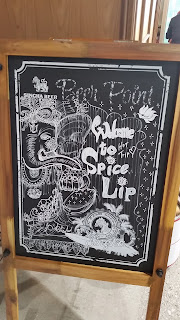 Beer Point
Welcome
to
Spice
Lip